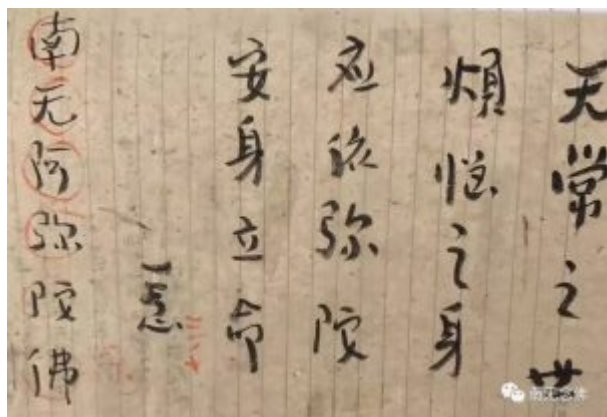 无常之世
烦恼之身
应依弥陀
安身立命
南无阿弥陀佛